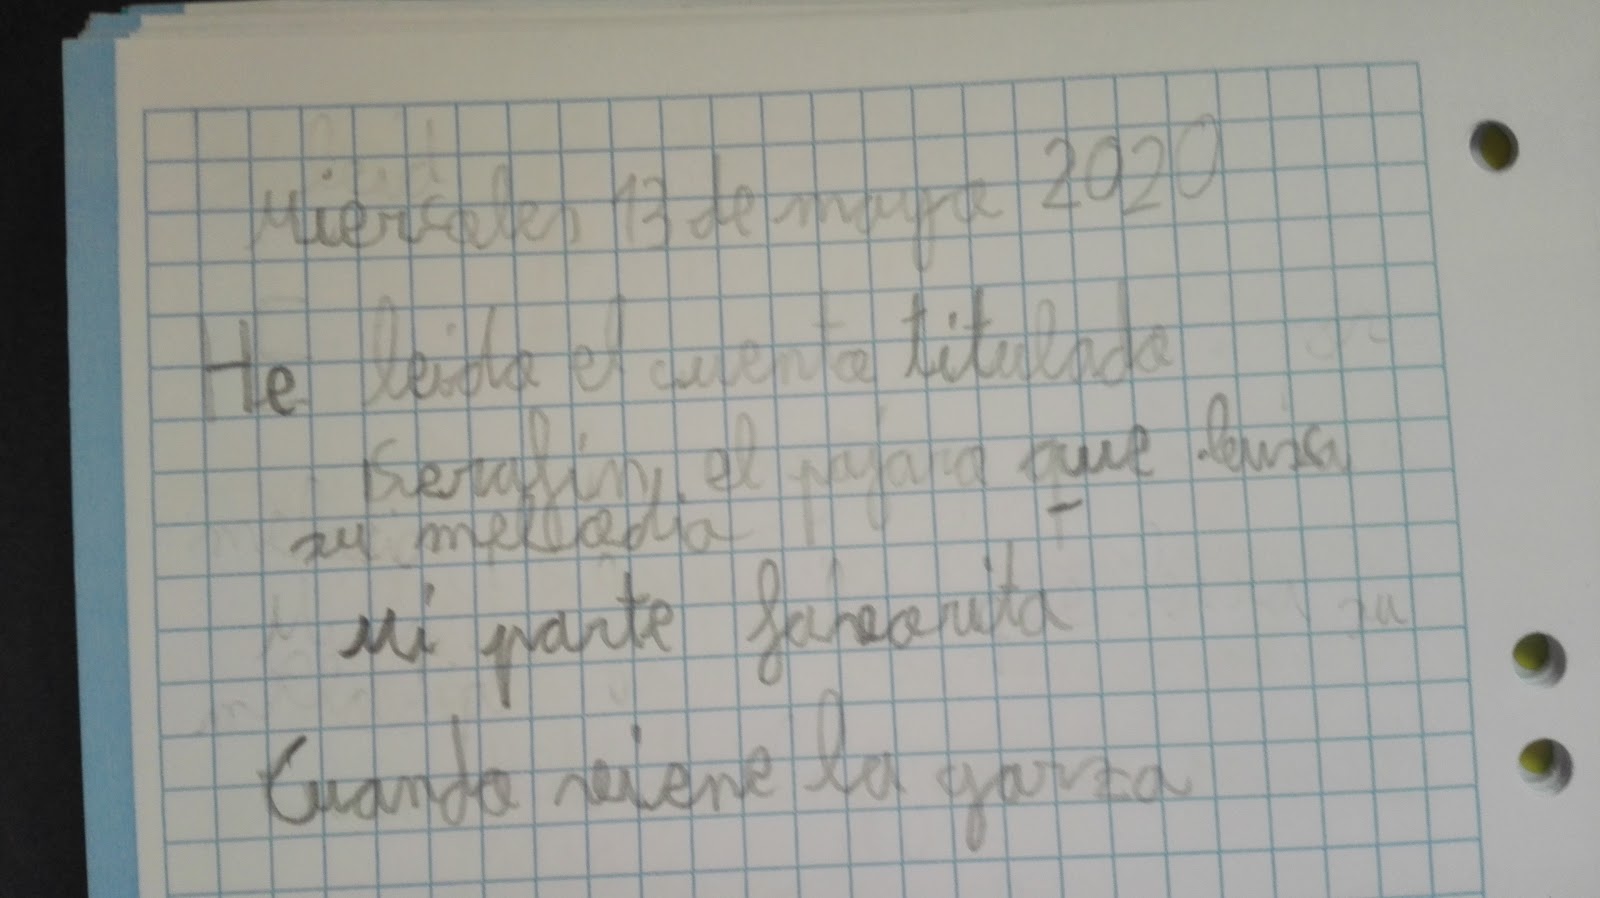 Miércoles 13 de mayo 2020
He leido el cuento titulado
Serafín, el pajaro que
su melodia
Mi parte faborita
Cuando viene la garza